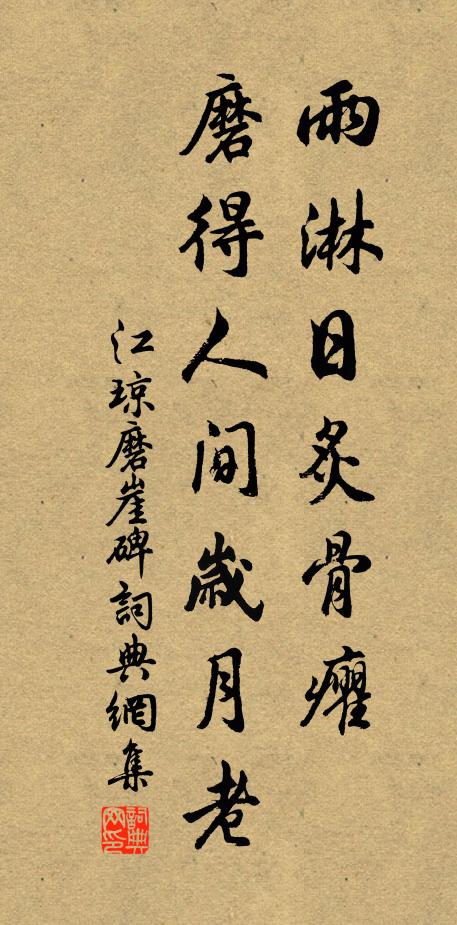 雨淋日炙骨癯
磨得人间歲月老
江琼磨崖碑詞典網集
詞典网印